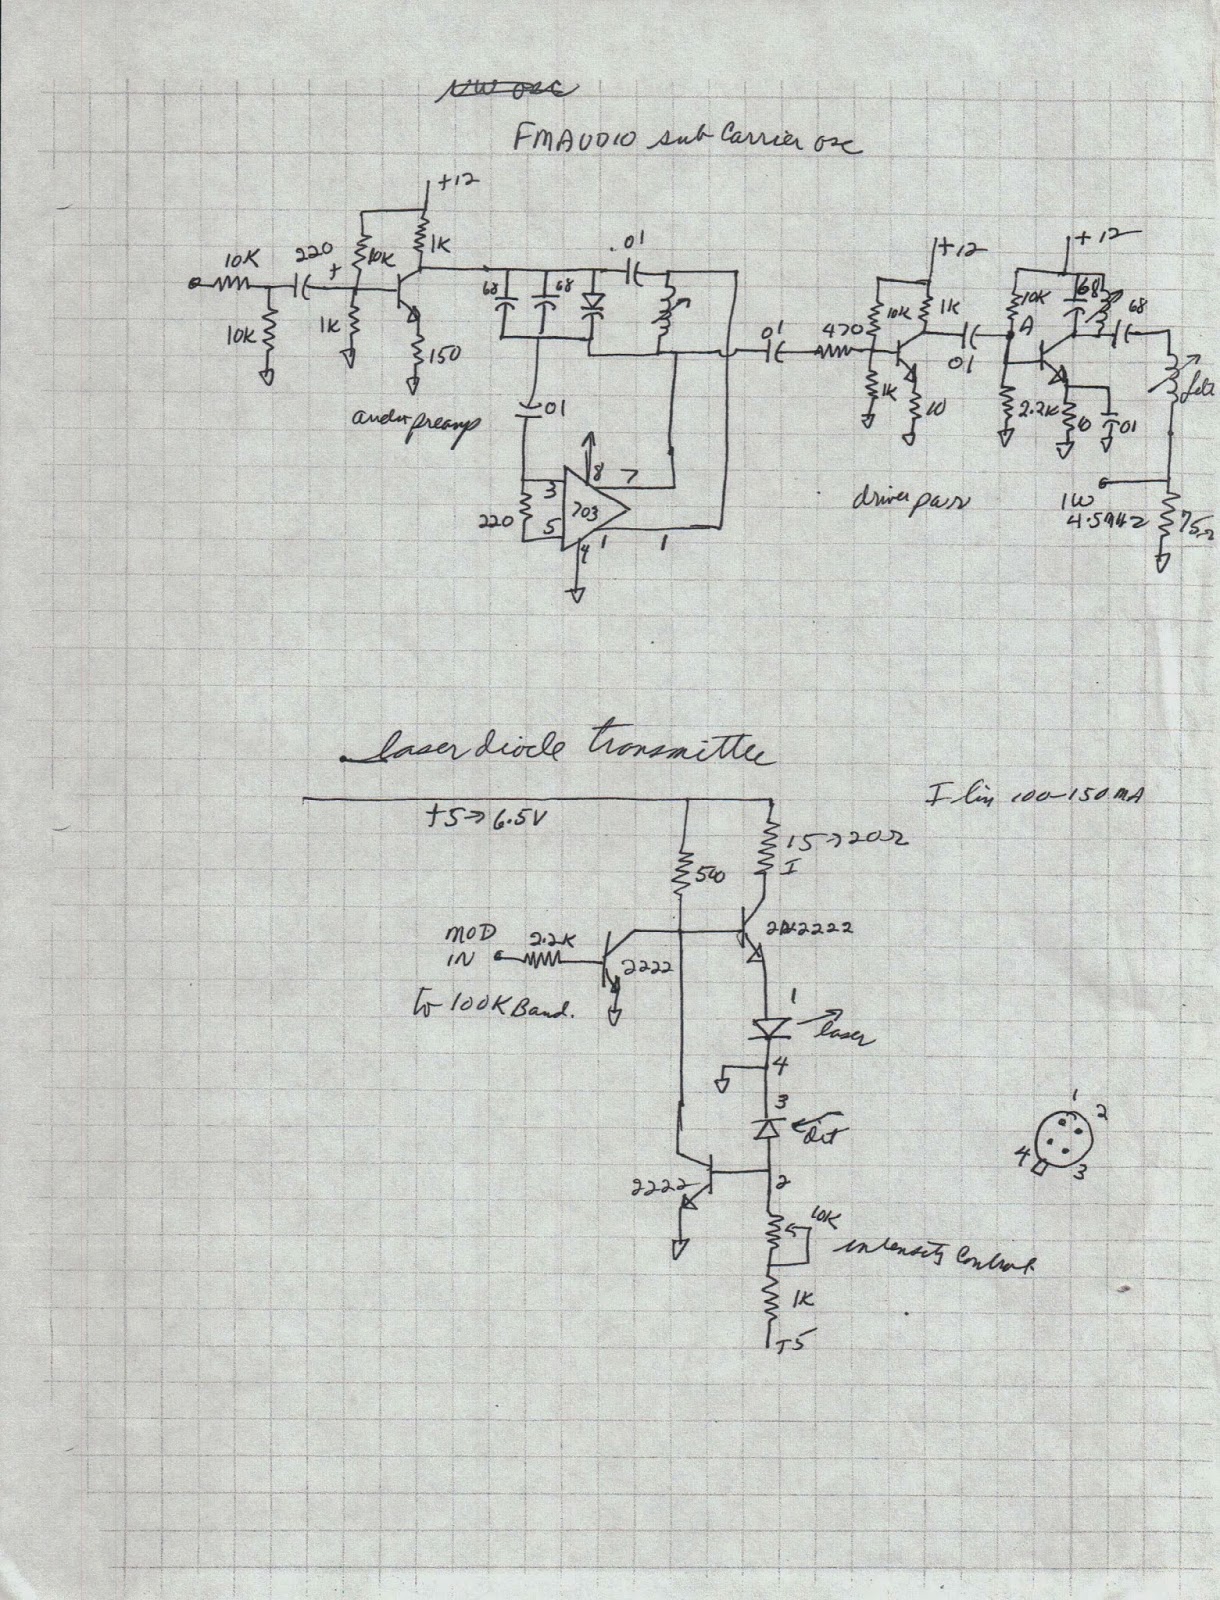 FM AUDIO sub Carrier osc
+12
10K
220
+
10K
1K
10K
1K
150
audio preamp
68
68
.01
01
220
3
8
7
703
5
4
1
1
01
470
10K
+12
1K
1K
10
01
driver pair
+12
10K
A
68
68
2.2K
10
01
1W
4.5MHz
75Ω
laser diode transmitter
+5→6.5V
I lim 100-150MA
15→20Ω
I
500
MOD
IN
2.2K
2222
2N2222
to 100K Band.
1
laser
4
3
Det
2222
2
10K
intensity Control
1K
+5
1
2
4
3